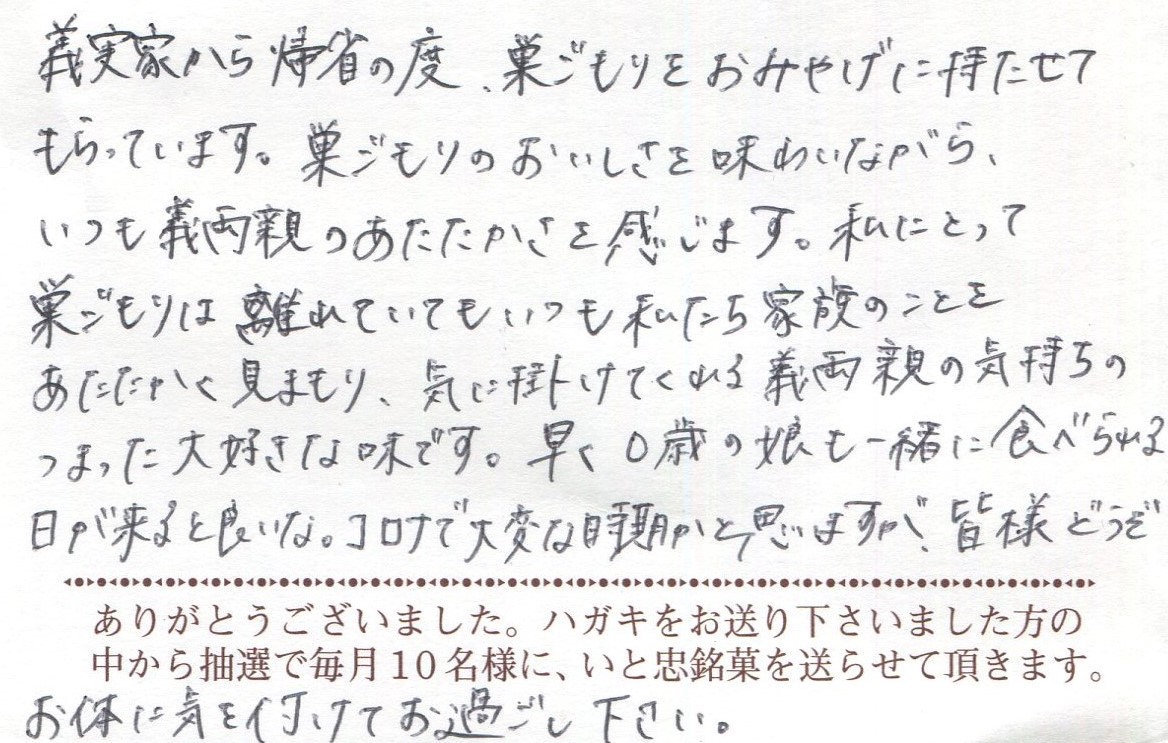 義実家から帰省の度、巣ごもりをおみやげに持たせて
もらっています。巣ごもりのおいしさを味わいながら、
いつも義両親のあたたかさを感じます。私にとって
巣ごもりは離れていてもいつも私たち家族のことを
あたたかく見まもり、気に掛けてくれる義両親の気持ちの
つまった大好きな味です。早く0歳の娘も一緒に食べられる
日が来ると良いな。コロナで大変な時期かと思いますが、皆様どうぞ
ありがとうございました。ハガキをお送り下さいました方の
中から抽選で毎月10名様に、いと忠銘菓を送らせて頂きます。
お体に気を付けてお過ごし下さい。